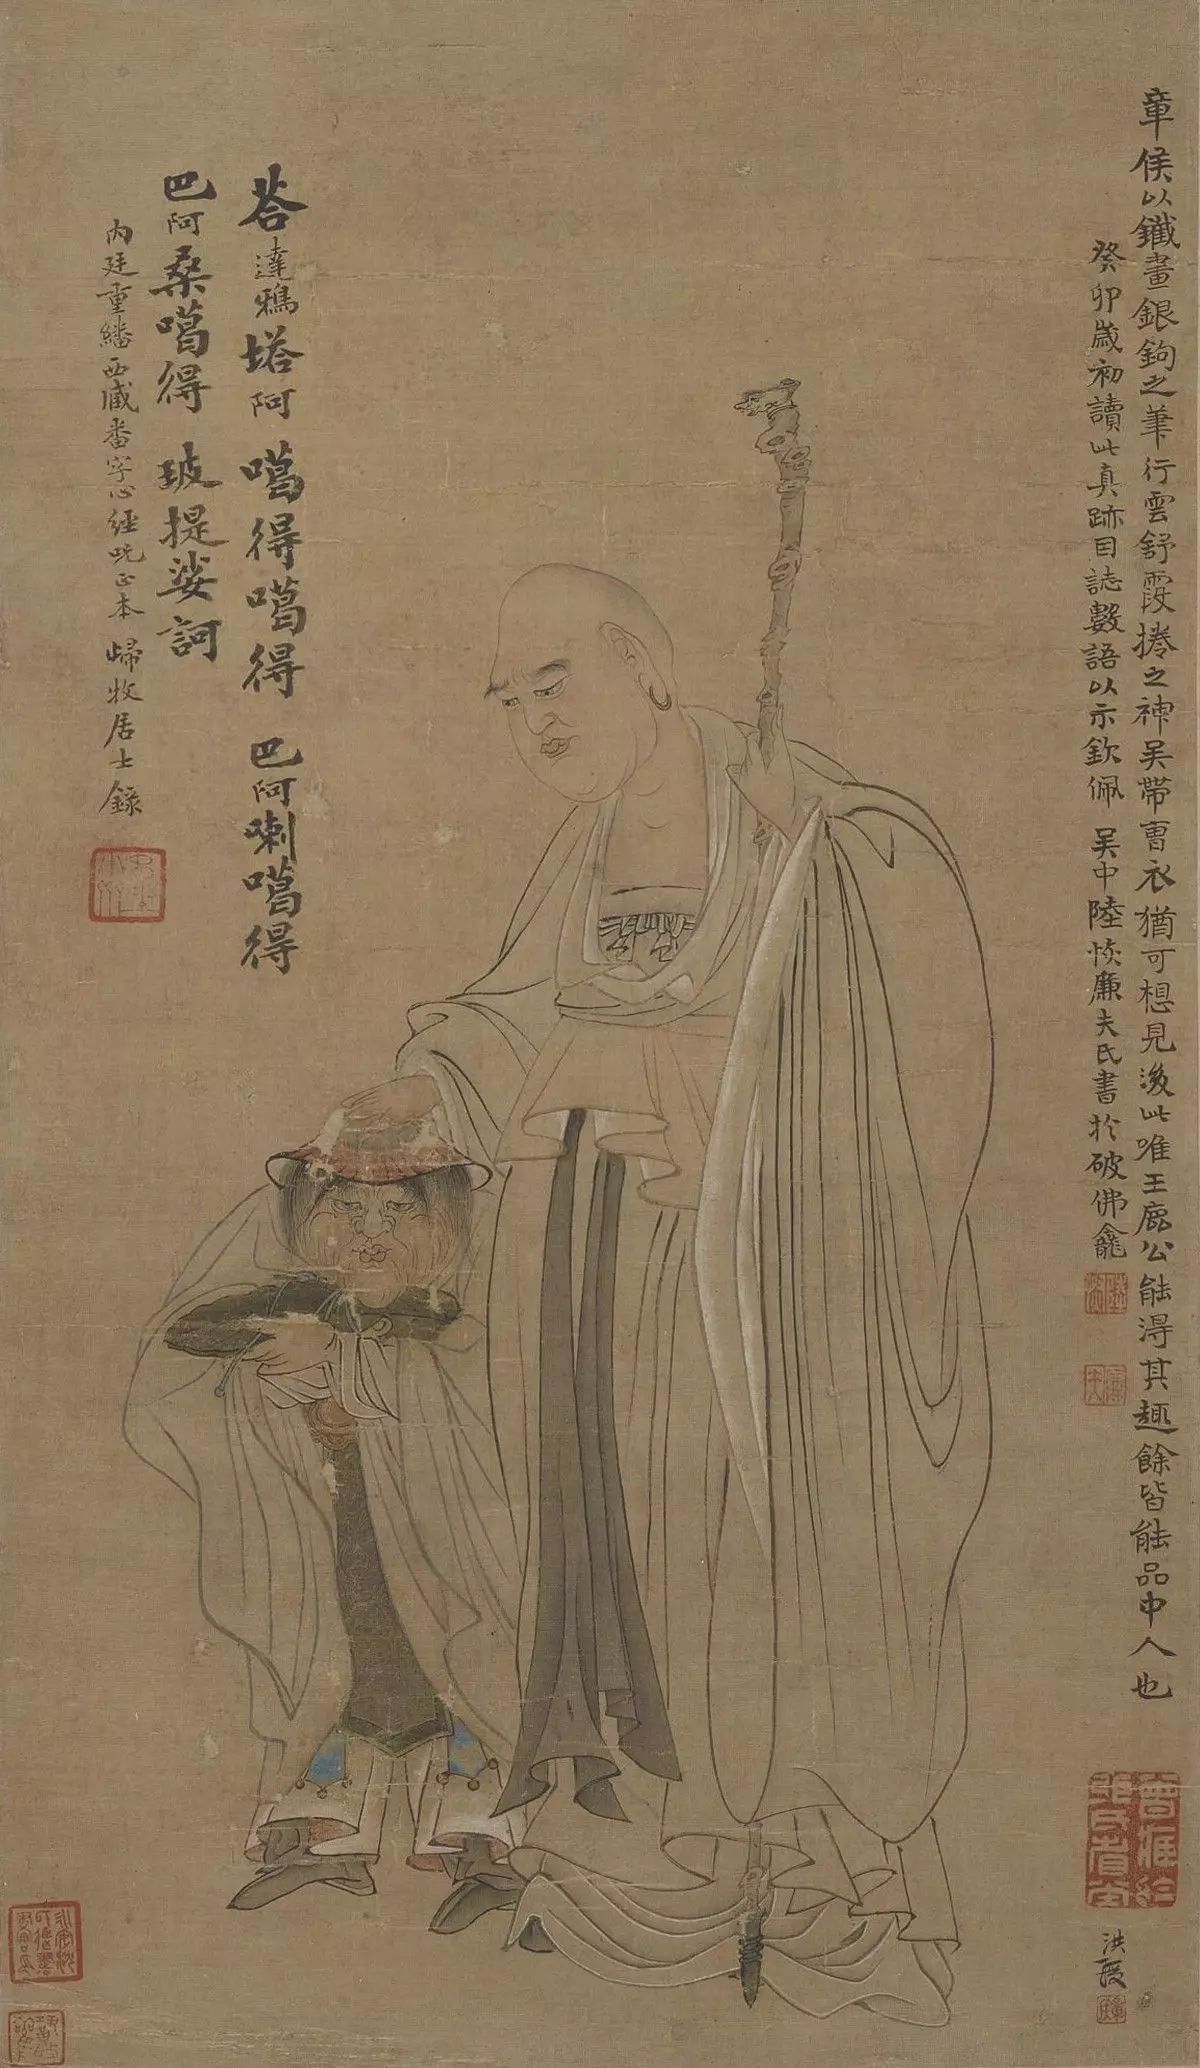 章侯以鐵畫銀鉤之筆行雲舒霞捲之神吳帶曹衣猶可想見後此唯王麃公能得其趣餘皆能品中人也
癸卯歲初讀此真跡因誌數語以示欽佩 吳中陸恢廉夫氏書於破佛龕
洪綬
荅達鴉塔阿 噶得噶得 巴阿喇噶得
巴阿桑噶得 玻提娑訶
內廷重繙西藏番字心經咒正本 歸牧居士錄